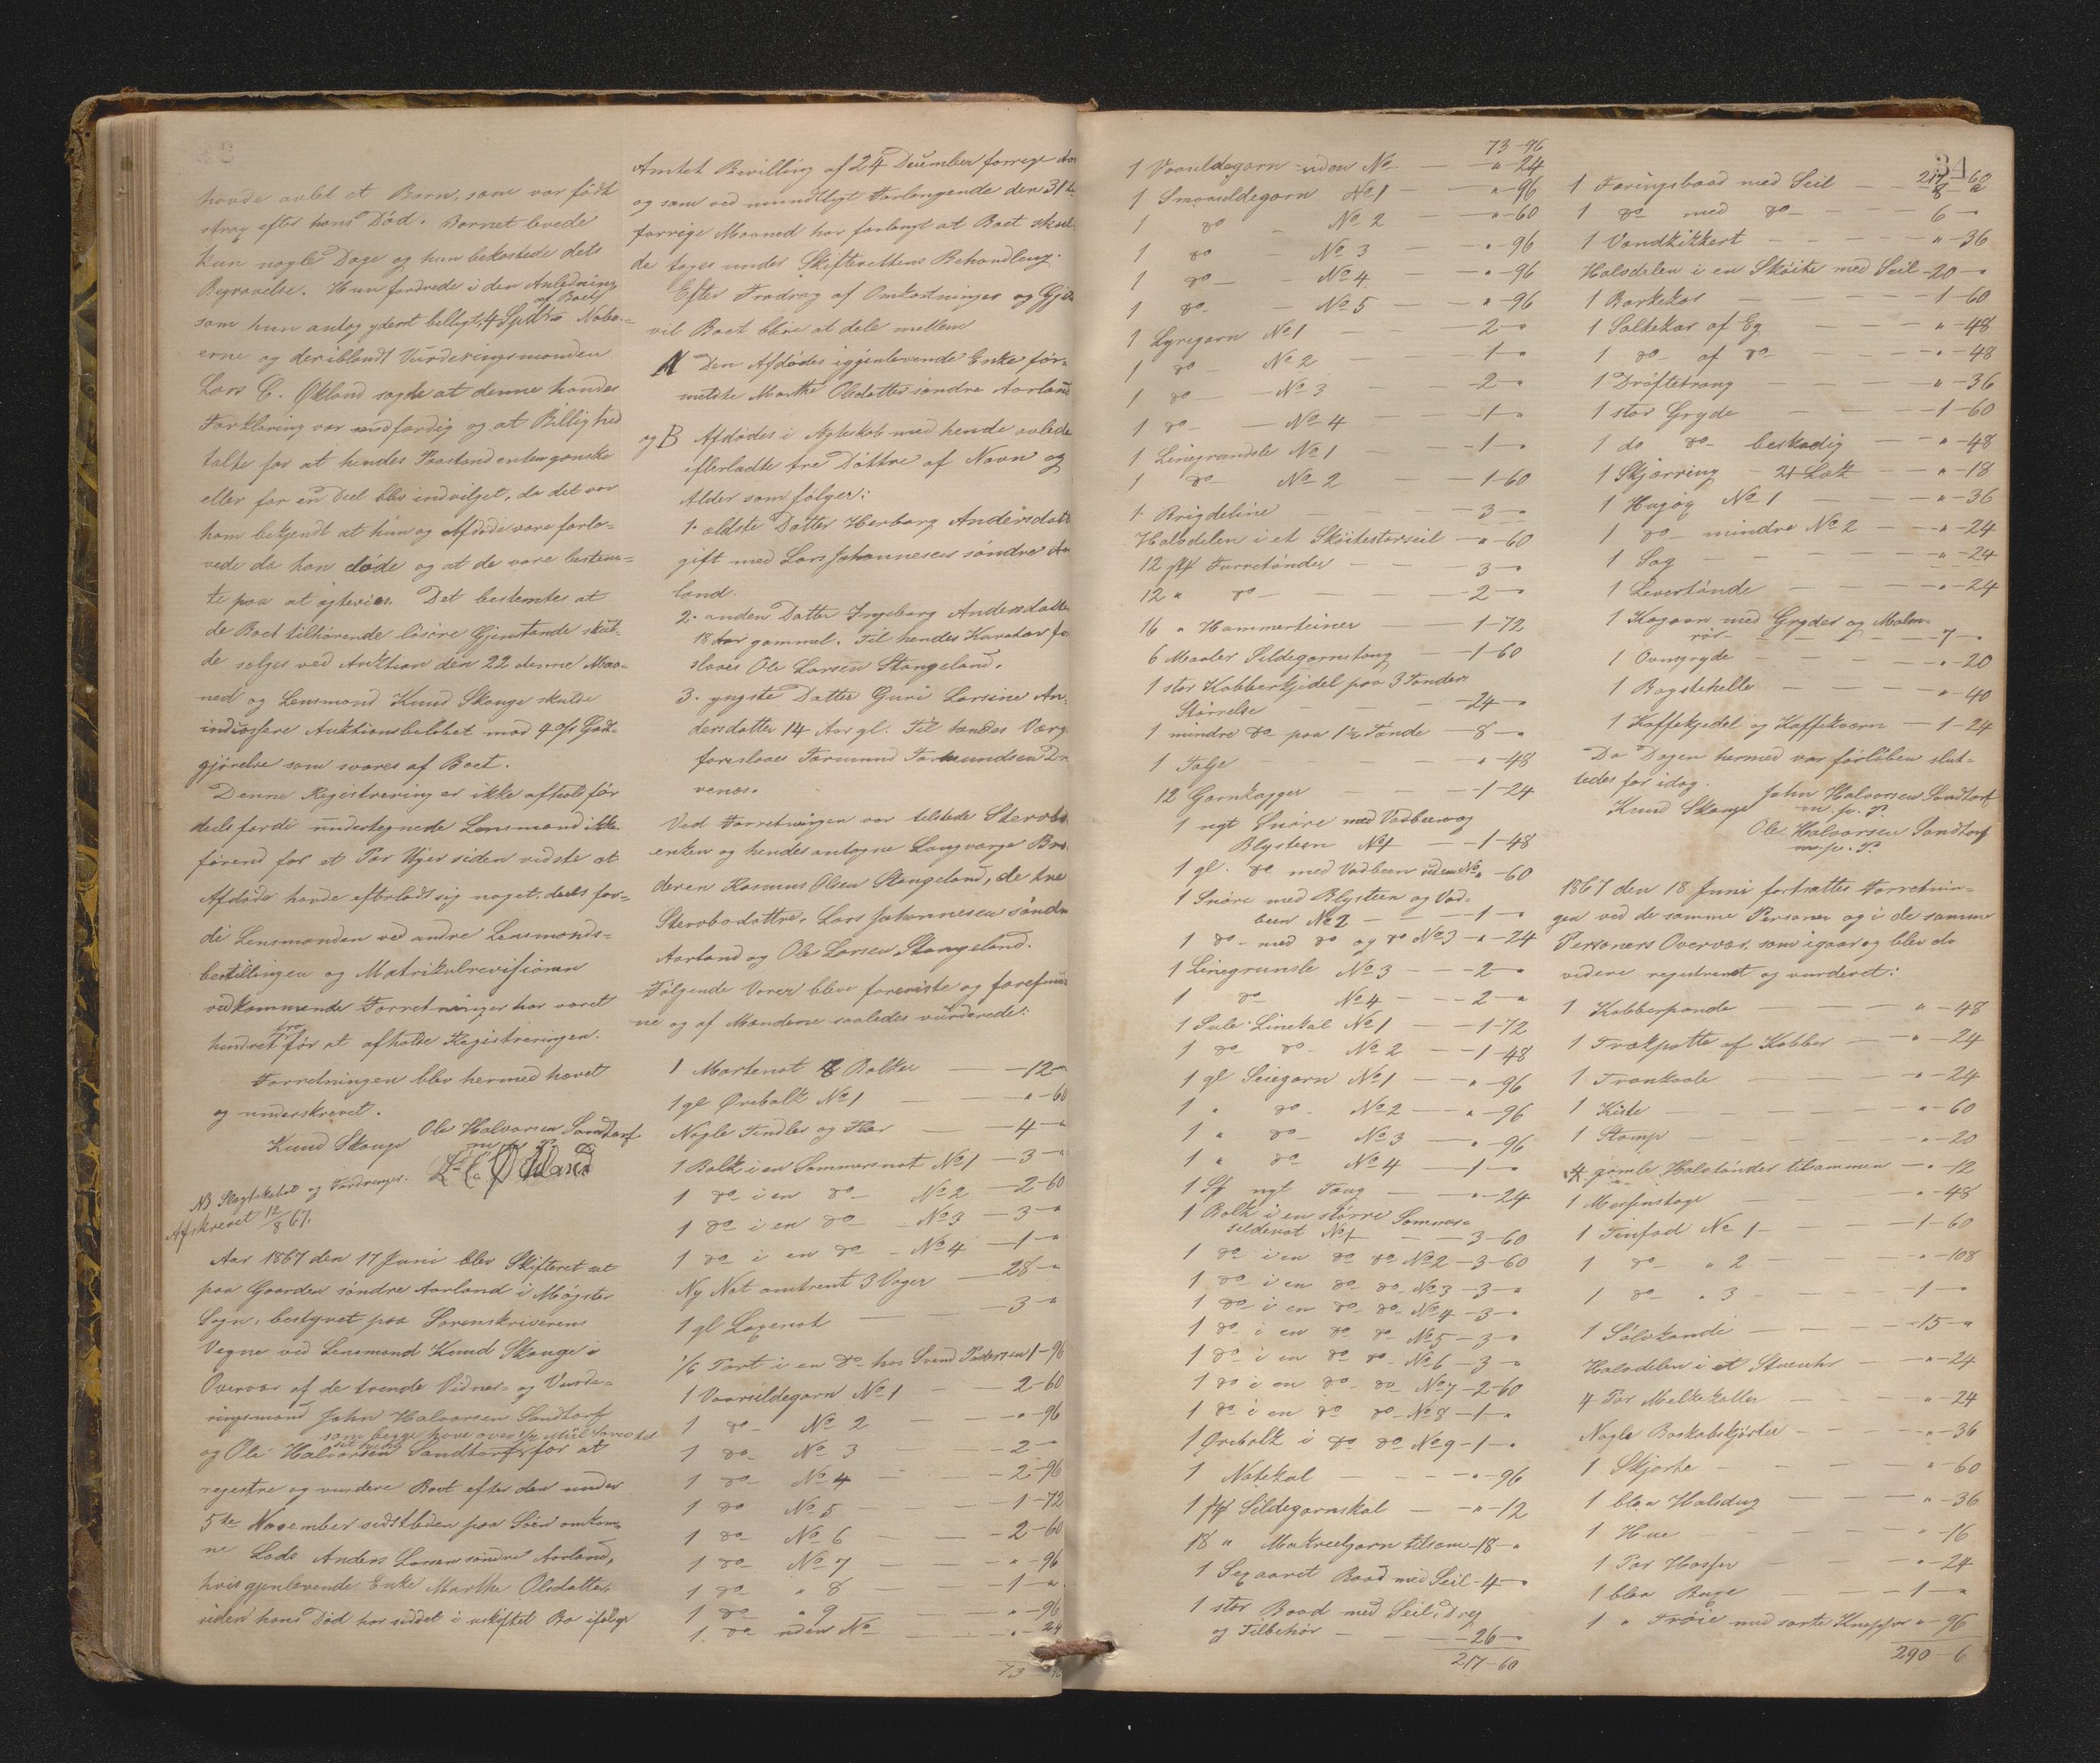 havde avlet et Barn, som var født
strax efter hans Død. Barnet levede
kun nogle Dage og hun bekostede dets
Begravelse. Hun fordrede i den Anledning
af Boet
som hun antog yderst billigt, 4 Spdlr. Nabo-
erne og deriblandt Vurderingsmanden
Lars C. Økland sagde at denne hendes
Forklaring var andfærdig og at Billighed
talte for at hendes Paastand enten ganske
eller for en Deel blev indvilget, da det var
ham bekjendt at hun og Afdøde vare forlo-
vede da han døde og at de vare bestem-
te paa at ægtevies. Det bestemtes at
de Boet tilhørende løsøre Gjenstande skul-
de sælges ved Auktion den 22 denne Maa-
ned og Lensmand Knud Skauge skulde
indcassere Auktionsbeløbet mod 4 % God-
gjørelse som svares af Boet.
Denne Registrering er ikke afholdt før
deels fordi undertegnede Lensmand ikke
førend for et Par Uger siden vidste at
Afdøde havde efterladt sig noget, deels for-
di Lensmanden ved andre Lensmands-
bestillingen og Matrikulrevisionen
vedkommende Forretninger har været
hindret fra før at afholde Registreringen.
Forretningen blev hermed hævet
og underskrevet.
Knud Skauge Ole Halvorsen Sandtorf
m. p. P.
L. C. Økland
NB Slagtskabet og Fordringer.
Afskrevet 12/8 67.
Aar 1867 den 17 Juni blev Skifteret sat
paa Gaarden søndre Aarland i Møgster
Sogn, bestyret paa Sorenskriverens
Vegne ved Lensmand Knud Skauge i
Overvær af de tvende Vidner- og Vurde-
ringsmænd John Halvorsen Sandtorf
som begge have over 1/2 Miil Søvei til
og Ole Halvorsen Sandtorf, for at
registre og vurdere Boet efter den under
5te November sidstleden paa Søen omkom-
ne Lods Anders Larsen søndre Aarland,
hvis gjenlevende Enke Marthe Olsdatter
siden hans Død har siddet i uskiftet Bo ifølge
Amtets Bevilling af 24 December forrige Aar
og som ved mundtligt Forlangende den 31te
forrige Maaned har forlangt at Boet skul-
de tages under Skifterettens Behandling.
Efter Fradrag af Omkostninger og Gjæld
vil Boet blive at dele mellem
A Den Afdødes igjenlevende Enke før-
meldte Marthe Olsdatter søndre Aarland
og B Afdødes i Ægteskab med hende avlede
efterladte tre Døttre af Navn og
Alder som følger:
1. ældste Datter Herborg Andersdatter
gift med Lars Johannesen søndre Aar-
land.
2. anden Datter Ingeborg Andersdatter
18 Aar gammel. Til hendes Kurator fore-
slaaes Ole Larsen Stangeland.
3. yngste Datter Guri Larsine An-
dersdatter 14 Aar gl. Til hendes Værge
foreslaaes Formund
venes.
Ved Forretningen var tilstede Stervbo
enken og hendes antagne Laugværge Bro-
deren Rasmus Olsen Stangeland, de tre
Stervbodøttre, Lars Johannesen søndre
Aarland og Ole Larsen Stangeland.
Følgende Varer bleve foreviste og forefun-
ne og af Mændene saaledes vurderede:
1 Mortenot 8 Bolker — 12 - "
1 gl Ørebolk No 1 — " - 60
Nogle Tindler og Flær — 4 - "
1 Bolk i en Sommernot No 1 — 3 - "
1 do i en do No 2 — 2 - 60
1 do i en do No 3 — 3 - "
1 do i en do No 4 — 1 - "
Ny Not omtrent 3 Vager — 28 - "
1 gl Laxenot — 3 - "
1/6 Part i en do hos Svend Pedersen 1 - 96
1 Vaarsildegarn No 1 — 2 - 60
1 do No 2 — " - 96
1 do No 3 — 2 - "
1 do No 4 — 2 - 96
1 do No 5 — 1 - 72
1 do No 6 — 2 - 60
1 do No 7 — " - 96
1 do " 8 — 1 - "
1 do " 9 — " - 96
1 do uden No — " - 24
73 - 96
73 - 96
1 Vaarsildegarn uden No — " - 24
1 Smaasildegarn No 1 — " - 96
1 do No 2 — " - 60
1 do No 3 — " - 96
1 do No 4 — " - 96
1 do No 5 — " - 96
1 Lyregarn No 1 — 2 - "
1 do No 2 — 1 - "
1 do No 3 — 2 - "
1 do No 4 — 1 - "
1 Linegrandsle No 1 — 1 - "
1 do No 2 — 1 - 60
1 Brigdeline — 3 - "
Halvdelen i et Skøitestorseil — " - 60
12 stk Furretønder — 3 - "
12 " do — 2 - "
16 " Hummerteiner — 1 - 72
6 Maaler Sildegarnstoug — 1 - 60
1 stor Kobberkjedel paa 3 Tønders
Størrelse — 24 - "
1 mindre do paa 1½ Tønde — 8 - "
1 Talje — " - 48
12 Garnkagger — 1 - 24
1 nyt Snøre med Vadbeen og
Blysteen No 1 — 1 - 48
1 gl. do med Vadbeen uden No " - 60
1 Snøre med Blysteen og Vad-
been No 2 — 1 - "
1 do med do og do No 3 — " - 24
1 Linegrunsle No 3 — 2 - "
1 do No 4 — 2 - "
1 Sule Linekal No 1 — 1 - 72
1 do do No 2 — 1 - 48
1 gl Seiegarn No 1 — " - 96
1 " do No 2 — " - 96
1 " do No 3 — " - 96
1 " do No 4 — 1 - "
1 St nyt Toug — " - 24
1 Bolk i en større Sommer-
sildenot No 1 — 3 - 60
1 do i en do do No 2 — 3 - 60
1 do i en do do No 3 — 3 - "
1 do i en do do No 4 — 3 - "
1 do i en do do No 5 — 3 - "
1 do i en do do No 6 — 3 - "
1 do i en do do No 7 — 2 - 60
1 do i en do do No 8 — 1 - "
1 Ørebolk i do do No 9 — 1 - "
1 Notekal — " - 96
1 stk Sildegarnskal — " - 12
18 " Makreelgarn tilsam. — 18 - "
1 Sexaaret Baad med Seil — 4 - "
1 stor Baad med Seil, Dræg
og Tilbehør — 26 - "
217 - 60
34
217 - 60
1 Færingsbaad med Seil — 8 - "
1 do med do — 6 - "
1 Vandkikkert — " - 36
Halvdelen i en Skøite med Seil — 20 - "
1 Barkekar — 1 - 60
1 Saltekar af Eg — " - 48
1 do af do — " - 48
1 Drøftetroug — " - 36
1 stor Gryde — 1 - 60
1 do do beskadig — " - 48
1 Skjærring — 21 Lok — " - 18
1 Hugøx No 1 — " - 36
1 do mindre No 2 — " - 24
1 Sag — " - 24
1 Levertønde — " - 24
1 Kogovn med Gryder og Malm-
rør — 7 - "
1 Ovnsgryde — " - 20
1 Bagstehelle — " - 40
1 Kaffekjedel og Kaffekværn — 1 - 24
Da Dagen hermed var forløben slut-
tedes for idag.
Knud Skauge John Halvorsen Sandtorf
m. p. P.
Ole Halvorsen Sandtorf
m. p. P.
1867 den 18 Juni fortsattes Forretnin-
gen ved de samme Personer og i de samme
Personers Overvær, som igaar og blev da
videre registreret og vurderet:
1 Kobberpande — " - 48
1 Trækpotte af Kobber — " - 24
1 Trankole — " - 24
1 Kiste — " - 60
1 Stamp — " - 20
4 gamle Halvtønder tilsammen — " - 12
1 Messinstage — " - 48
1 Tinfad No 1 — 1 - 60
1 do " 2 — " - 108
1 do " 3 — 1 - "
1 Sølvkande — 15 - "
Halvdelen i et Stueuhr — " - 24
4 Par Melkekoller — " - 24
Nogle Bogkabskjørler — " - 36
1 Skjorte — " - 60
1 blaa Halsdug — " - 36
1 Hue — " - 16
1 Par Hoser — " - 24
1 blaa Buxe — 1 - "
1 " Trøie med sorte Knapper " - 96
290 - 6